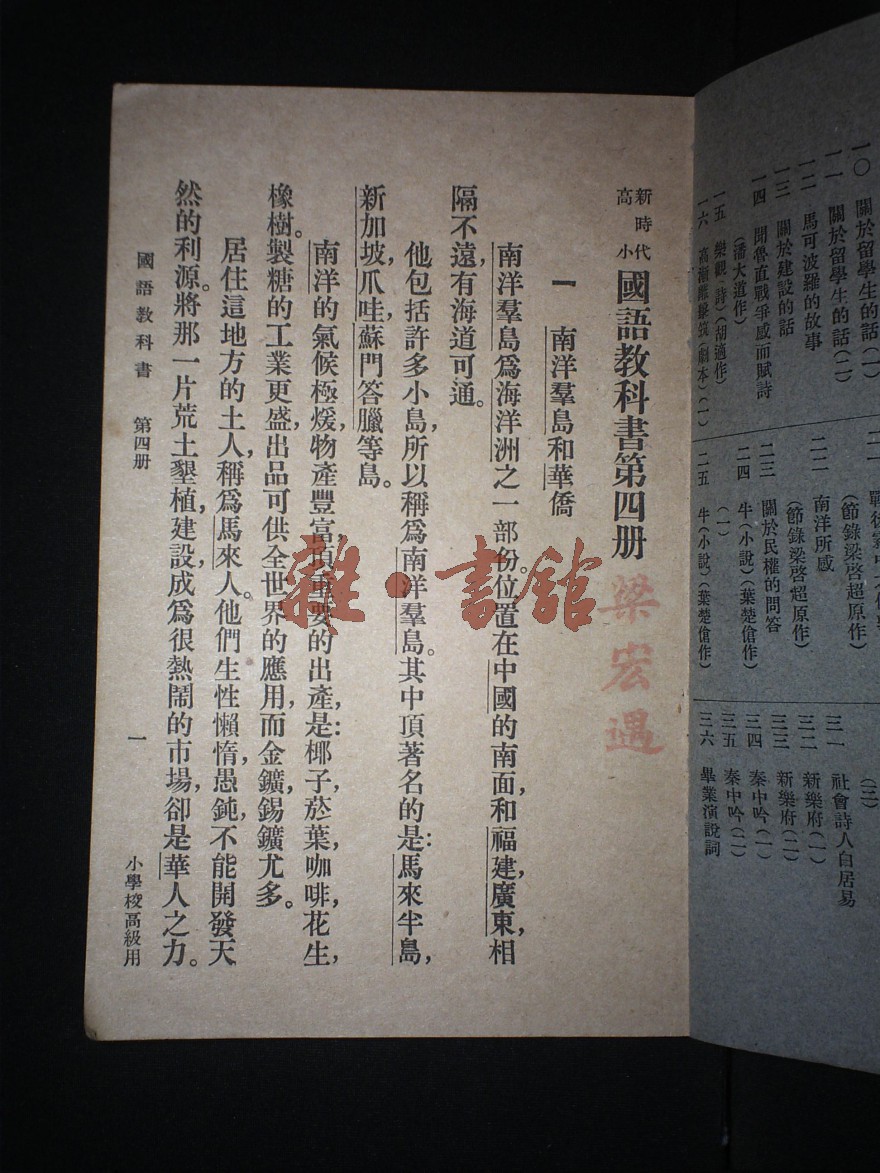 一〇　關於留學生的話(一)
一一　關於留學生的話(二)
一二　馬可波羅的故事
一三　關於建設的話
一四　聞魯直戰爭感而賦詩
(潘大道作)
一五　樂觀(詩)(胡適作)
一六
(劇本)(一)
(節錄梁啓超原作)
二二　南洋所感
(節錄梁啓超原作)
二三　關於民權的問答
二四　牛(小說)(葉楚傖作)
(一)
二五　牛(小說)(葉楚傖作)
(三)
三一　社會詩人白居易
三二　新樂府(一)
三三　新樂府(二)
三四　秦中吟(一)
三五　秦中吟(二)
三六　畢業演說詞
新時代
高小
國語教科書第四册
梁宏遇
一　南洋羣島和華僑
南洋羣島爲海洋洲之一部份。位置在中國的南面,和福建,廣東,相
隔不遠,有海道可通。
他包括許多小島,所以稱爲南洋羣島。其中頂著名的是:馬來半島,
新加坡,爪哇,蘇門答臘等島。
南洋的氣候極煖,物產豐富,頂重要的出產,是:椰子,菸葉,咖啡,花生,
橡樹。製糖的工業更盛,出品可供全世界的應用,而金鑛,錫鑛尤多。
居住這地方的土人,稱爲馬來人。他們生性懶惰,愚鈍,不能開發天
然的利源。將那一片荒土墾植,建設,成爲很熱鬧的市場,卻是華人之力。
國語教科書　第四册　一　小學校高級用
雜·書館